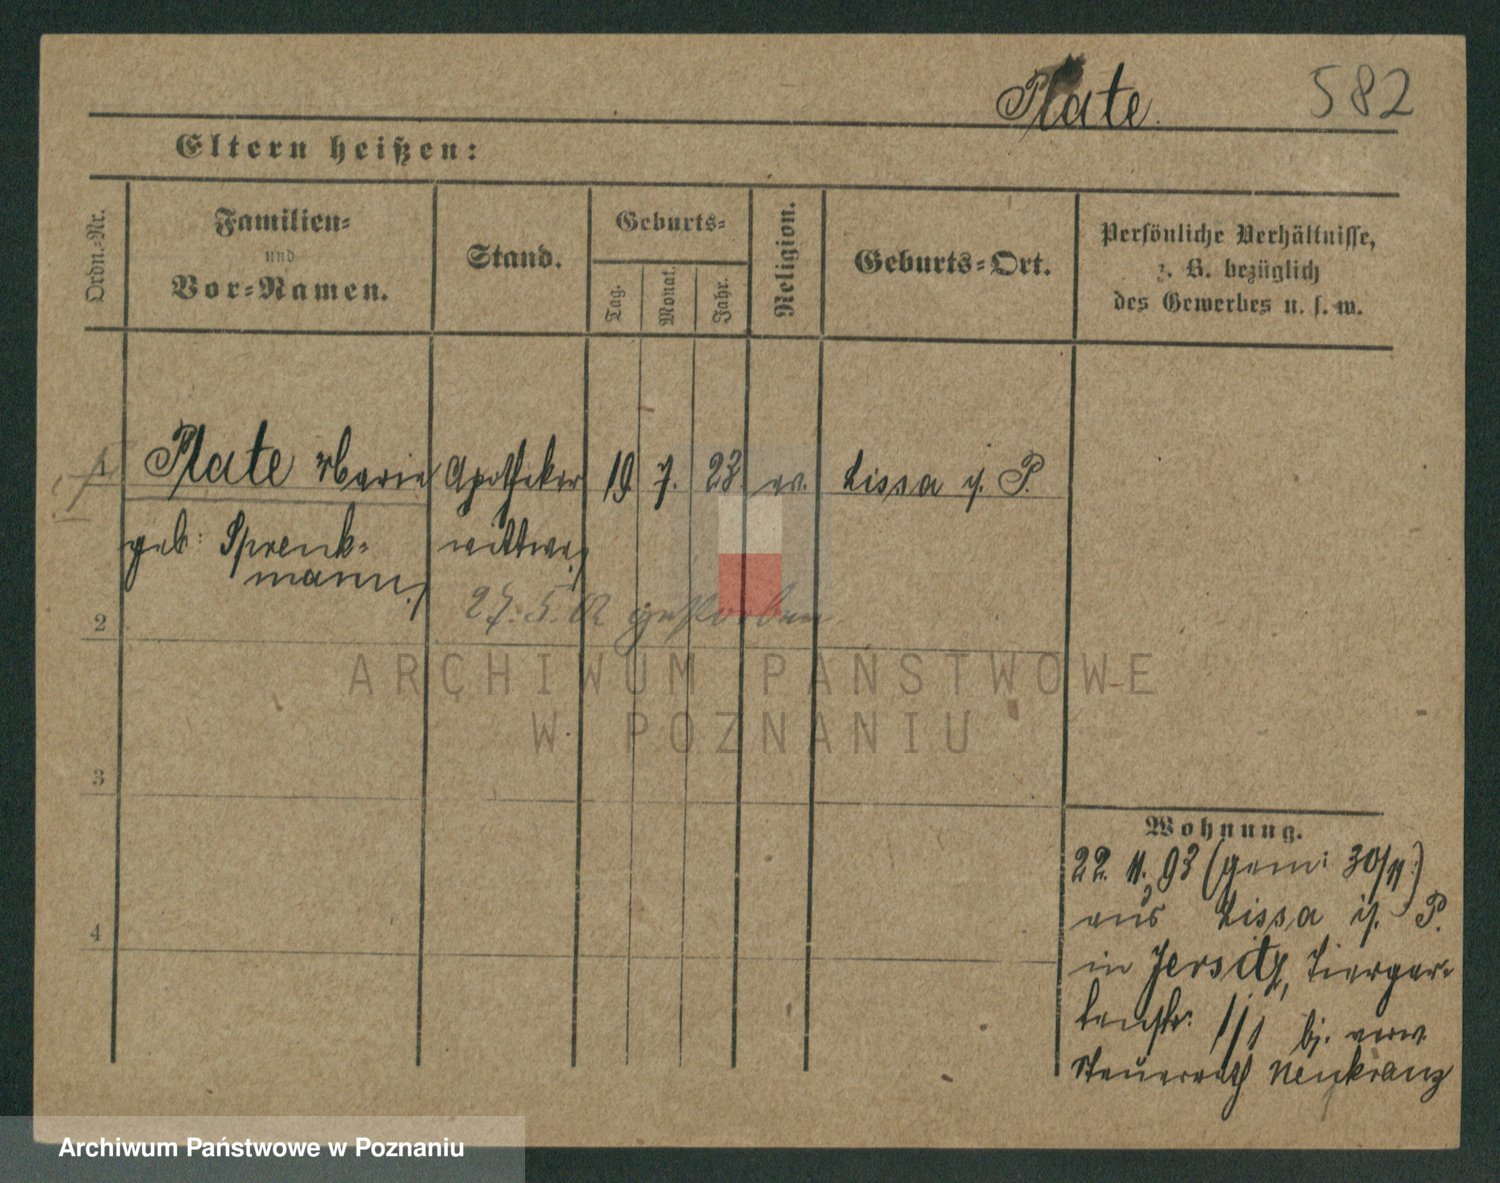 Plate. 582
Eltern heißen:
Ordn.-Nr.
Familien-
und
Vor-Namen.
Stand.
Geburts-
Tag.
Monat.
Jahr.
Religion.
Geburts-Ort.
Persönliche Verhältnisse,
z. B. bezüglich
des Gewerbes u. s. w.
1 Plate Marie Apotheker 19. 7. 23 ev. Lissa i. P.
geb: Sprenk- wittwe
mann
27. 5. 02 gestorben
2
ARCHIWUM PAŃSTWOWE
W POZNANIU
3
Wohnung.
22. 11. 93 (gem: 30/11)
4
aus Lissa i. P.
in Jersitz, Tiergar-
tenstr. 1/1 bj. verw.
Steuerrath Neukranz
Archiwum Państwowe w Poznaniu